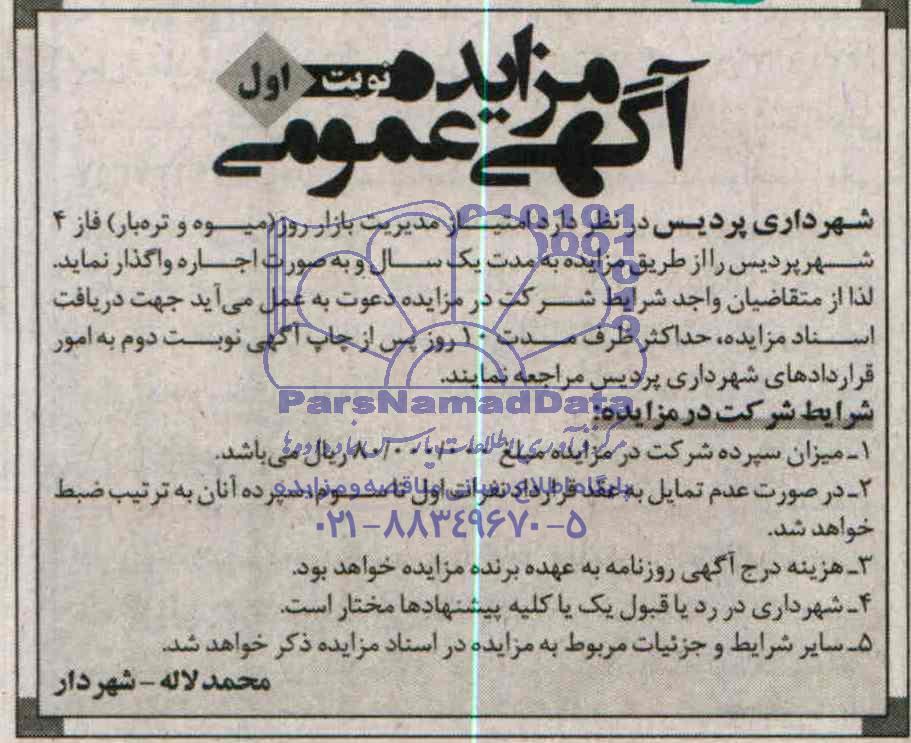 آگهی مزایده عمومی
نوبت اول
شهرداری پردیس در نظر دارد امتیاز مدیریت بازار روز (میوه و تره‌بار) فاز ۴
شهر پردیس را از طریق مزایده به مدت یک سال و به صورت اجاره واگذار نماید.
لذا از متقاضیان واجد شرایط شرکت در مزایده دعوت به عمل می‌آید جهت دریافت
اسناد مزایده، حداکثر ظرف مدت ۱۰ روز پس از چاپ آگهی نوبت دوم به امور
قراردادهای شهرداری پردیس مراجعه نمایند.
ParsNamadData
شرایط شرکت در مزایده:
۱ـ میزان سپرده شرکت در مزایده مبلغ ریال می‌باشد.
مرکز فرآوری اطلاعات پارس نماد داده‌ها
۲ـ در صورت عدم تمایل به عقد قرارداد نفرات اول تا سوم، سپرده آنان به ترتیب ضبط
پایگاه اطلاع رسانی مناقصه و مزایده
خواهد شد.
۰۲۱-۸۸۳۴۹۶۷۰-۵
۳ـ هزینه درج آگهی روزنامه به عهده برنده مزایده خواهد بود.
۴ـ شهرداری در رد یا قبول یک یا کلیه پیشنهادها مختار است.
۵ـ سایر شرایط و جزئیات مربوط به مزایده در اسناد مزایده ذکر خواهد شد.
محمد لاله - شهردار